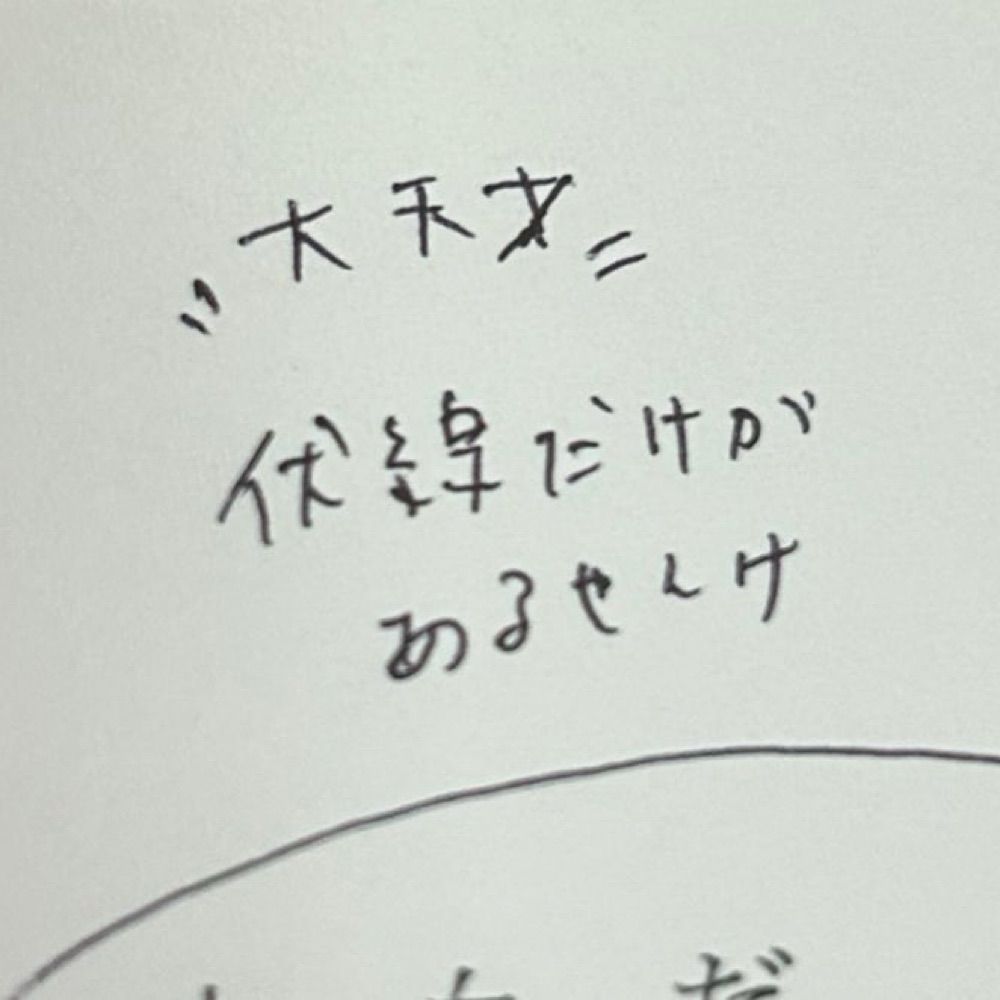 〃大天才〃
伏線だけが
あるやんけ